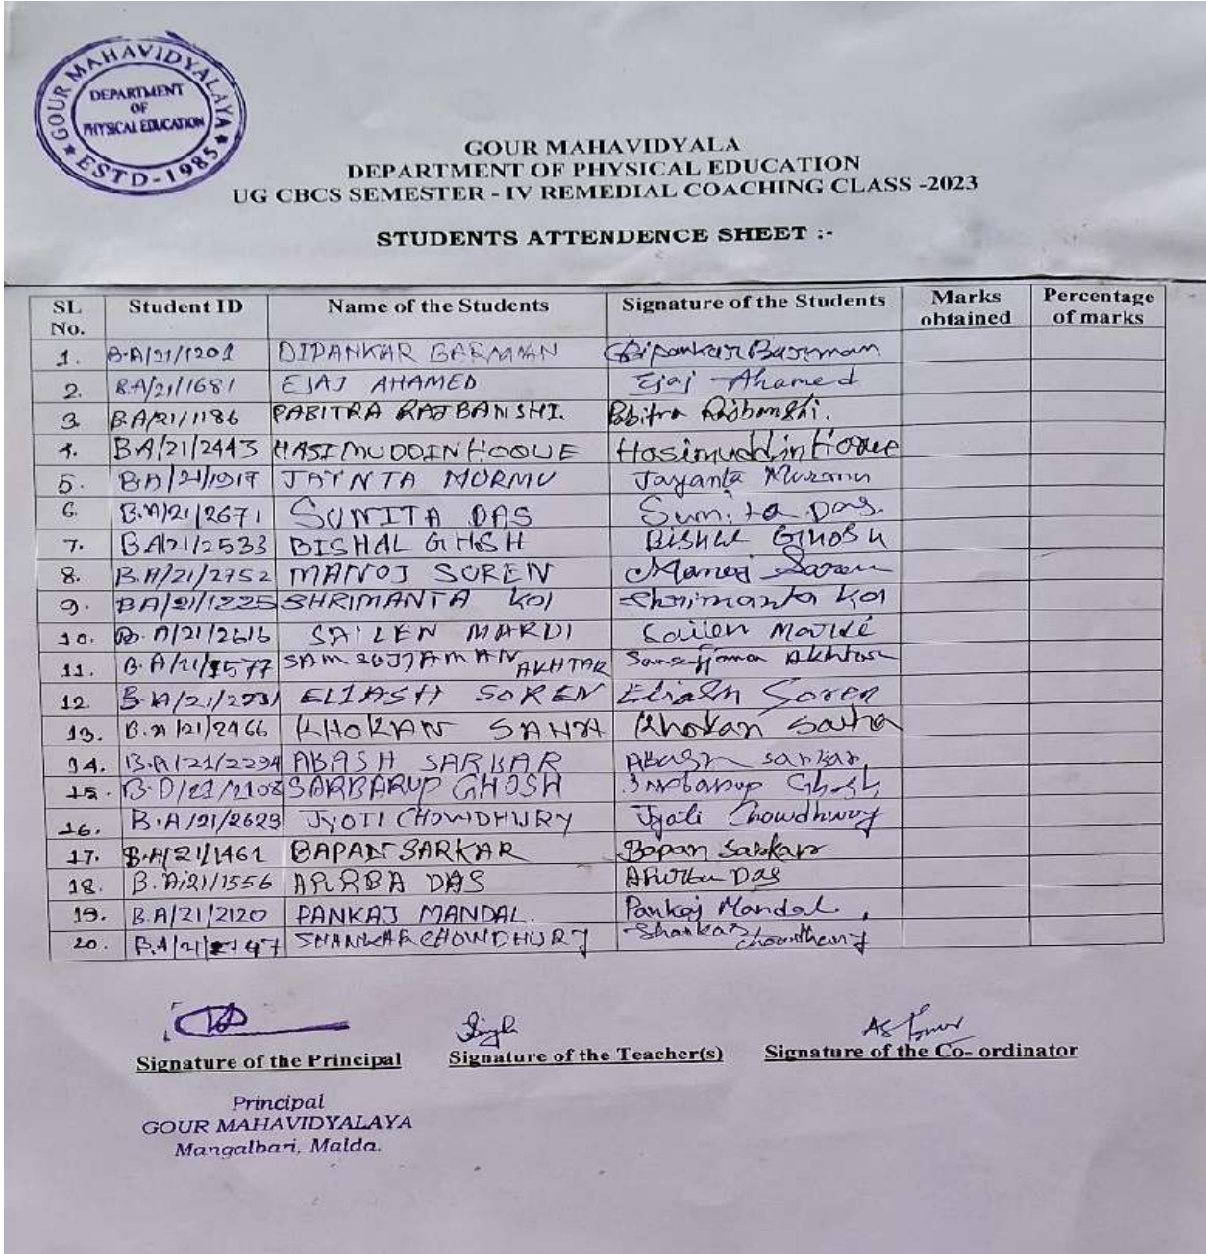 GOUR MAHAVIDYALAYA
★ ESTD-1985 ★
DEPARTMENT
OF
PHYSICAL EDUCATION
GOUR MAHAVIDYALA
DEPARTMENT OF PHYSICAL EDUCATION
UG CBCS SEMESTER - IV REMEDIAL COACHING CLASS -2023
STUDENTS ATTENDENCE SHEET :-
SL No. Student ID Name of the Students Signature of the Students Marks obtained Percentage of marks
1. B.A/21/1201 DIPANKAR BARMAN Dipankar Barman
2. B.A/21/1681 EJAJ AHAMED Ejaj Ahamed
3. B.A/21/1186 PABITRA RAJBANSHI. Pabitra Rajbanshi.
4. BA/21/2443 HASIMUDDIN HOQUE Hasimuddin Hoque
5. BA/21/1917 JAYNTA MORMU Jayanta Murmu
6. B.A/21/2671 SUNITA DAS Sunita Das.
7. BA/21/2533 BISHAL GHSH BISHAL GHOSH
8. B.A/21/2752 MANOJ SOREN Manoj Soren
9. BA/21/1225 SHRIMANTA KOL Shrimanta Kol
10. B.A/21/2616 SAILEN MARDI Sailen Mardi
11. B.A/21/1577 AKHTAR Akhtar
12. B.A/21/2231 ELIASH SOREN Eliash Soren
13. B.A/21/2466 KHOKAN SAHA Khokan Saha
14. B.A/21/2294 ABASH SARKAR Abash Sarkar
15. SARBARUP GHOSH Ghosh
16. B.A/21/2629 JYOTI CHOWDHURY Jyoti Chowdhury
17. B.A/21/1461 BAPAN SARKAR Bapan Sarkar
18. B.A/21/1556 APURBA DAS Das
19. B.A/21/2120 PANKAJ MANDAL. Pankaj Mandal.
20. SHANKAR CHOWDHURY Shankar Chowdhury
Signature of the Principal Signature of the Teacher(s) Signature of the Co- ordinator
Principal
GOUR MAHAVIDYALAYA
Mangalbari, Malda.